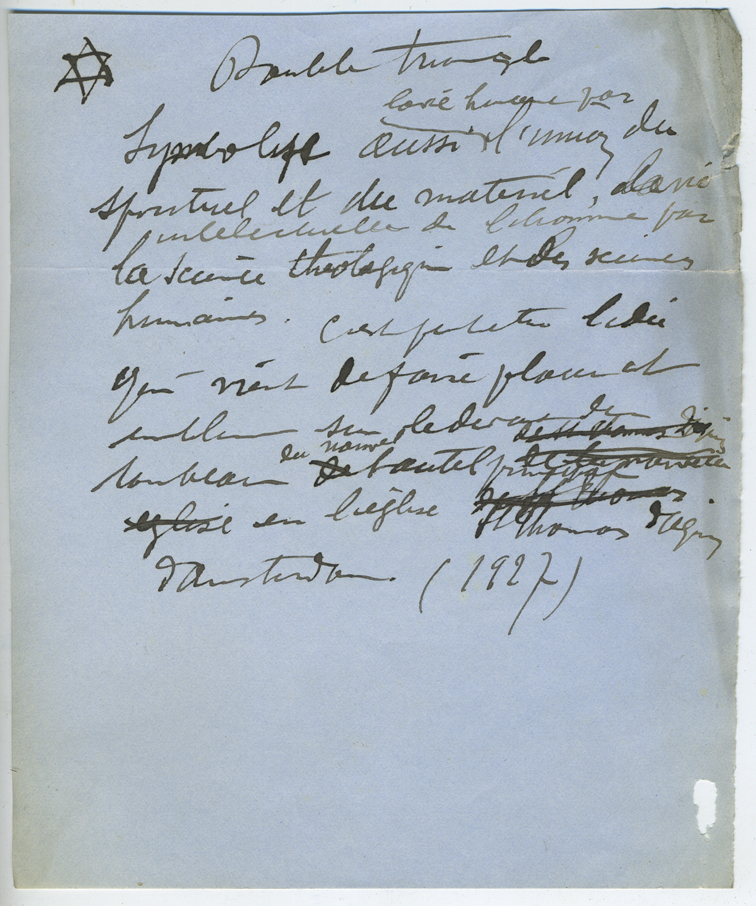 Double triangle
la vie humaine par
Symbolise aussi l'union du
spirituel et du matériel, la vie
intelectuelle de l'homme par
la science théologique et des sciences
humaines. C'est peut etre l'idée
qui vient de faire placer cet
emblème sur le devant du
de St thomas
tombeau du nouvel autel principal
église en l'église St thomas d'Aquin
d'Amsterdam. (1927)